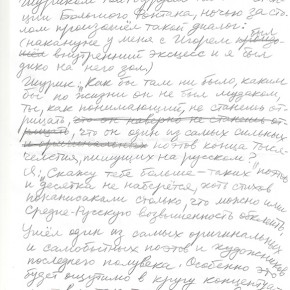 ции Большого Фонтана, ночью за сто-
лом произошёл такой диалог:
(накануне у меня с Игорем был
внутренний эксцесс и я был
дико на него зол)
Шурик: "Как бы там ни было, каким
бы по жизни он не был мудаком,
ты, как понимающий, не станешь от-
рицать, что он наверно не станешь от-
рицать, что он один из самых сильных
и поэтов конца тыся-
челетия, пишущих на русском?
Я: Скажу тебе больше – таких поэтов
и десятка не наберётся, хотя стихов
понаписали столько, что можно ими
Средне-Русскую возвышенность обклеить.
Ушёл один из самых оригинальных
и самобытных поэтов и художников
последнего полувека. Особенно это
будет ощутимо в кругу концентра-